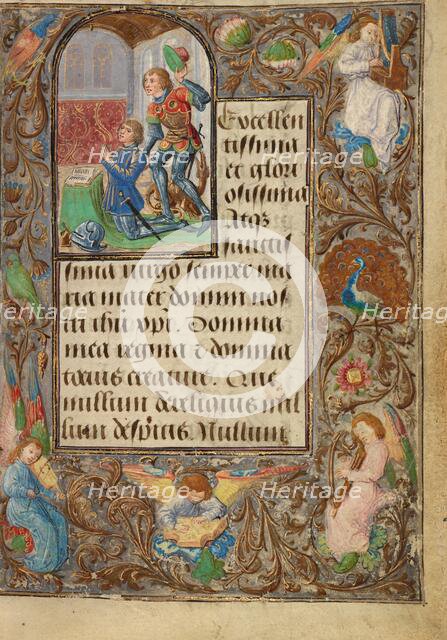 Excellen
tissima
et glori
osissima
Atqz
sanctis
sima virgo semper ma
ria mater domini nos
tri ihu xpi. Domina
mea regina et domina
totius creature. Que
nullum derliquis nul
lum despicis. Nullum
Heritage Images
Heritage Images
Heritage Images
Heritage Images
Heritage Images